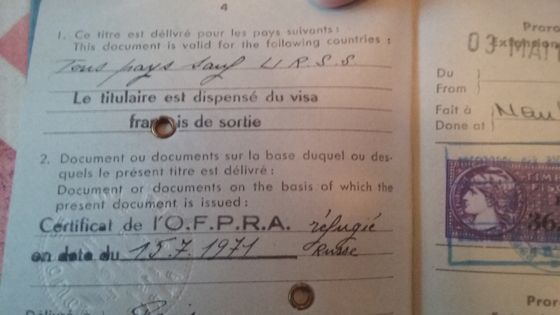 4
1. Ce titre est délivré pour les pays suivants :
This document is valid for the following countries :
Tous pays sauf U.R.S.S.
Le titulaire est dispensé du visa
français de sortie
2. Document ou documents sur la base duquel ou des-
quels le présent titre est délivré :
Document or documents on the basis of which the
present document is issued :
Certificat de l'O.F.P.R.A. réfugié
en date du 15.7.1971 Russe
Proro
Extension
03 MAI
Du
From
Fait à
Done at
Pror